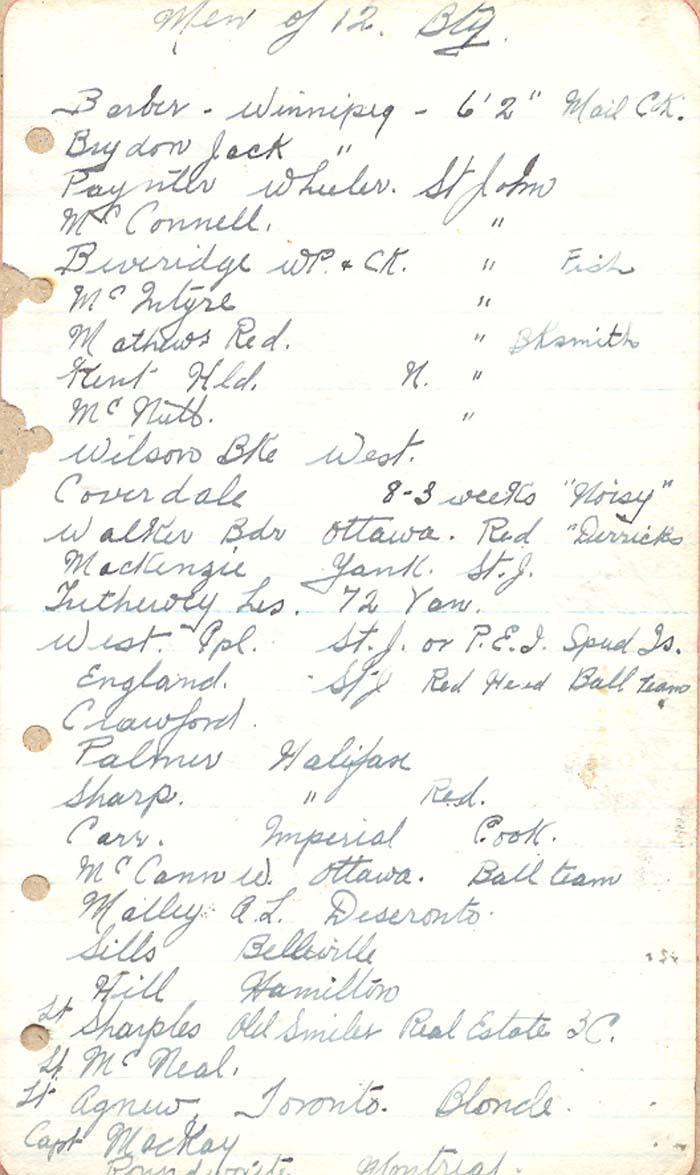 Men of 12. Bty.
Barber - Winnipeg - 6'2" Mail Ck.
Brydon Jack "
Paynter Wheeler. St John
McConnell. "
Beveridge WP. & CK. " Fish
McIntyre "
Mathews Red. " Bksmith
Kent Hld. N. "
McNutt. "
Wilson Bke West.
Coverdale 8-3 weeks "Noisy"
Walker Bdr Ottawa. Red "Derricks
MacKenzie Yank. St. J.
Tetherwey Les. 72 Van.
West. Cpl. St. J. or P.E.I. Spud Is.
England. St J Red Head Ball team
Crawford.
Palmer Halifax
Sharp. " Red.
Carr. Imperial Cook.
McCann W. Ottawa. Ball team
Malley A.L. Deseronto.
Sills Belleville
Hill Hamilton
Lt Sharples Old Smiler Real Estate BC.
Lt. McNeal.
Lt Agnew Toronto. Blonde.
Capt MacKay
Montreal.